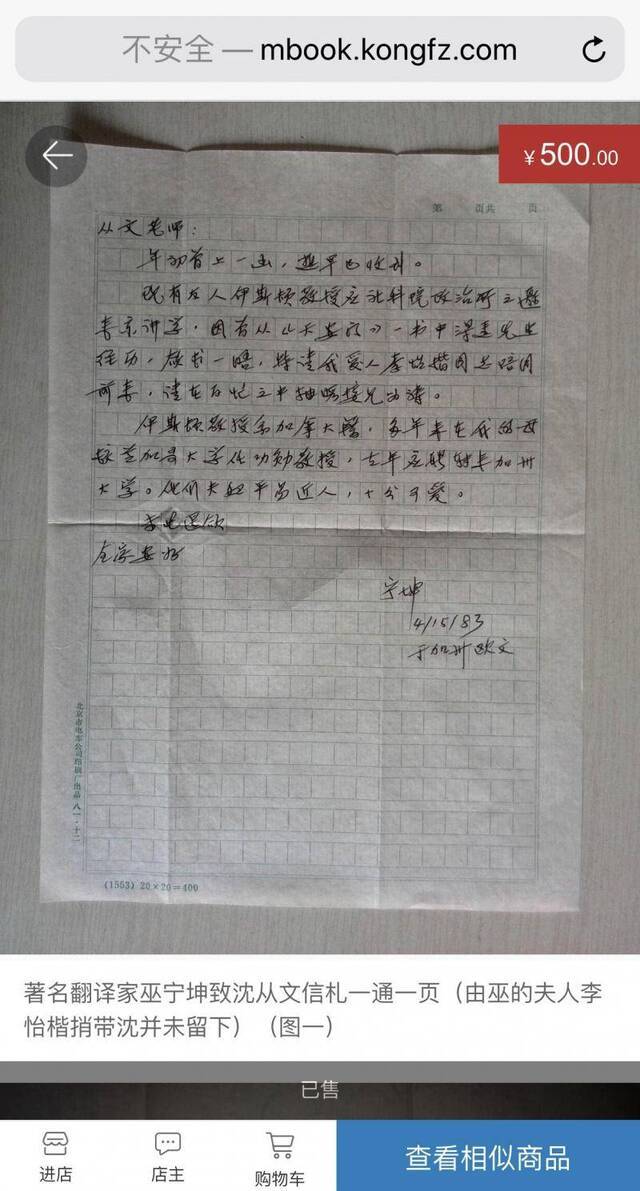 不安全 — mbook.kongfz.com
¥500.00
第 页共 页
从文老师：
年初曾上一函，想早已收到。
现有友人伊斯顿教授应社科院政治所之邀
来京讲学，因
一书中得悉先生
一晤，特请我爱人李怡楷同志陪同
前来，请在百忙之中抽暇接见为祷。
伊斯顿教授系加拿大籍，多年来在我的母
校芝加哥大学任功勋教授，去年应聘转来加州
大学。他们夫妇平易近人，十分可爱。
全家安好
宁坤
4/15/83
于加州欧文
北京市电车公司印刷厂出品 八一·十二
(1553) 20×20=400
著名翻译家巫宁坤致沈从文信札一通一页（由巫的夫人李
怡楷捎带沈并未留下）（图一）
已售
进店
店主
购物车
查看相似商品